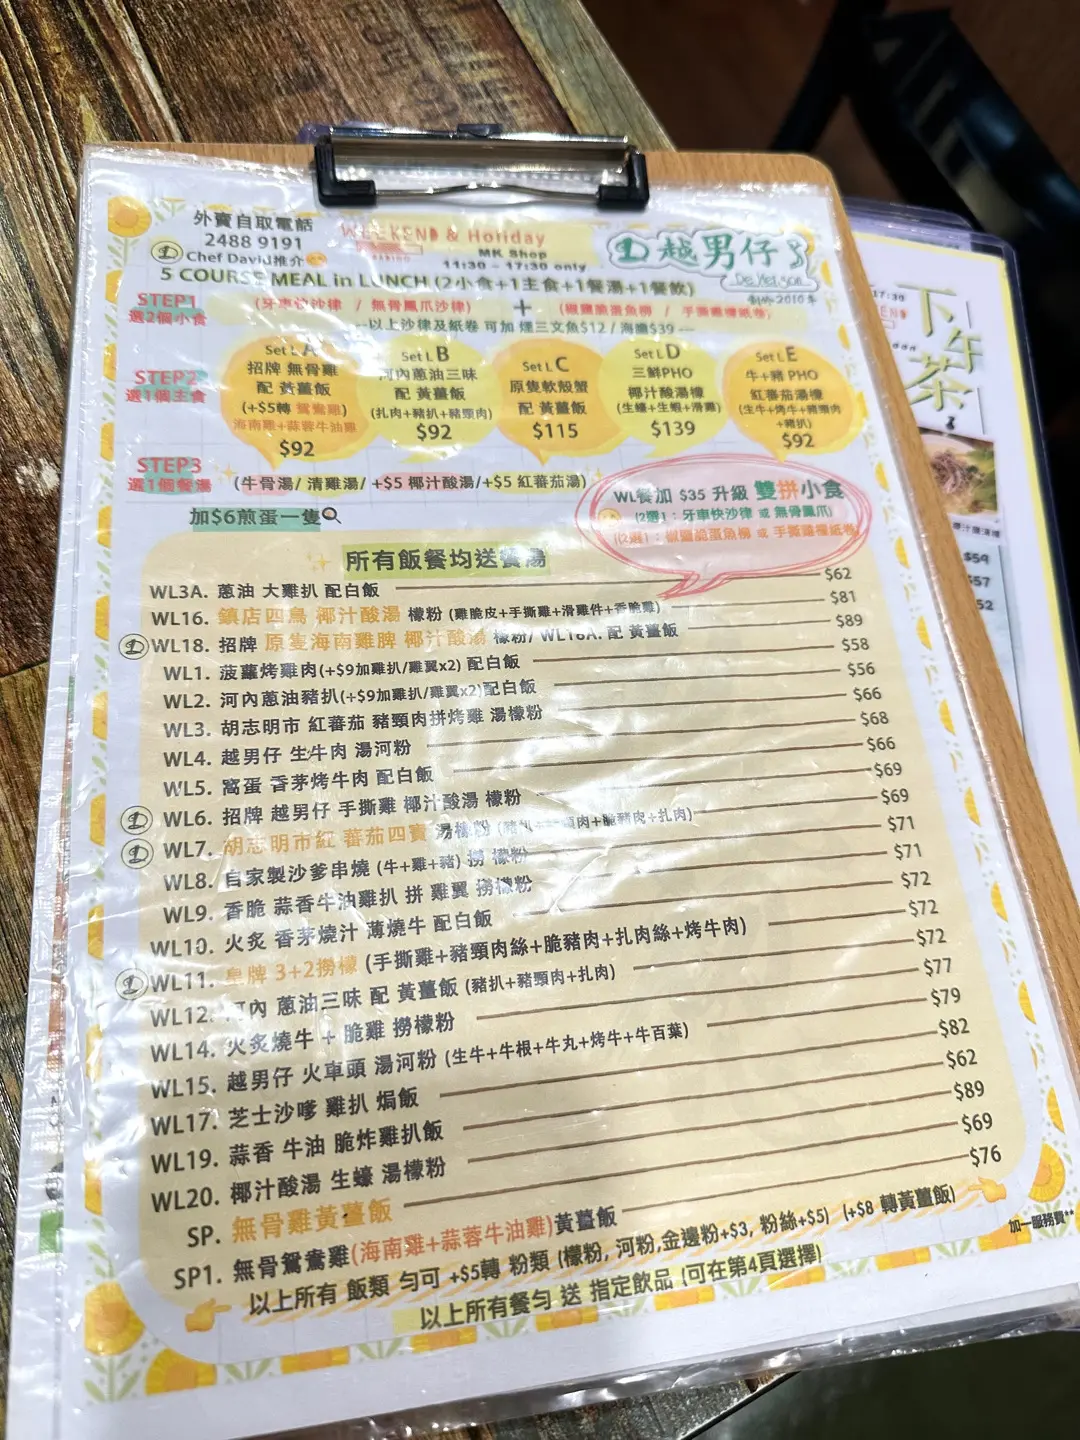 外賣自取電話
2488 9191
Chef David推介
WEEKEND & Holiday
MK Shop
11:30 - 17:30 only
越男仔
De Vietson
創始2010年
5 COURSE MEAL in LUNCH (2小食+1主食+1餐湯+1餐飲)
STEP1
選2個小食
(牙車快沙律 / 無骨鳳爪沙律)
+
(椒鹽脆蛋魚柳 / 手撕雞檬紙卷)
--以上沙律及紙卷 可加 煙三文魚$12 / 海膽$39 ---
STEP2
選1個主食
Set L A
招牌 無骨雞
配 黃薑飯
(+$5轉 鴛鴦雞)
海南雞+蒜蓉牛油雞
$92
Set L B
河內蔥油三味
配 黃薑飯
(扎肉+豬扒+豬頸肉)
$92
Set L C
原隻軟殼蟹
配 黃薑飯
$115
Set L D
三鮮PHO
椰汁酸湯檬
(生蠔+生蝦+滑雞)
$139
Set L E
牛+豬 PHO
紅蕃茄湯檬
(生牛+烤牛+豬頸肉
+豬扒)
$92
STEP3
選1個餐湯
(牛骨湯/ 清雞湯/ +$5 椰汁酸湯/+$5 紅蕃茄湯)
加$6煎蛋一隻
WL餐加 $35 升級 雙拼小食
(2選1 : 牙車快沙律 或 無骨鳳爪)
(2選1 : 椒鹽脆蛋魚柳 或 手撕雞檬紙卷)
所有飯餐均送餐湯
WL3A. 蔥油 大雞扒 配白飯 $62
WL16. 鎮店四鳥 椰汁酸湯 檬粉 (雞脆皮+手撕雞+滑雞件+香脆雞) $81
WL18. 招牌 原隻海南雞脾 椰汁酸湯 檬粉/ WL18A. 配 黃薑飯 $89
WL1. 菠蘿烤雞肉(+$9加雞扒/雞翼x2) 配白飯 $58
WL2. 河內蔥油豬扒(+$9加雞扒/雞翼x2)配白飯 $56
WL3. 胡志明市 紅蕃茄 豬頸肉拼烤雞 湯檬粉 $66
WL4. 越男仔 生牛肉 湯河粉 $68
WL5. 窩蛋 香茅烤牛肉 配白飯 $66
WL6. 招牌 越男仔 手撕雞 椰汁酸湯 檬粉 $69
WL7. 胡志明市紅 蕃茄四寶 湯檬粉 (豬扒+豬頸肉+脆豬肉+扎肉) $69
WL8. 自家製沙爹串燒 (牛+雞+豬) 撈 檬粉 $71
WL9. 香脆 蒜香牛油雞扒 拼 雞翼 撈檬粉 $71
WL10. 火炙 香茅燒汁 薄燒牛 配白飯 $72
WL11. 皇牌 3+2撈檬 (手撕雞+豬頸肉絲+脆豬肉+扎肉絲+烤牛肉) $72
WL12. 河內 蔥油三味 配 黃薑飯 (豬扒+豬頸肉+扎肉) $72
WL14. 火炙燒牛 + 脆雞 撈檬粉 $77
WL15. 越男仔 火車頭 湯河粉 (生牛+牛根+牛丸+烤牛+牛百葉) $79
WL17. 芝士沙嗲 雞扒 焗飯 $82
WL19. 蒜香 牛油 脆炸雞扒飯 $62
WL20. 椰汁酸湯 生蠔 湯檬粉 $89
SP. 無骨雞黃薑飯 $69
SP1. 無骨鴛鴦雞(海南雞+蒜蓉牛油雞)黃薑飯 $76
以上所有 飯類 勻可 +$5轉 粉類 (檬粉, 河粉,金邊粉+$3, 粉絲+$5) (+$8 轉黃薑飯)
以上所有餐勻 送 指定飲品 (可在第4頁選擇)
加一服務費**
17:30
下午茶
$54
$57
$52